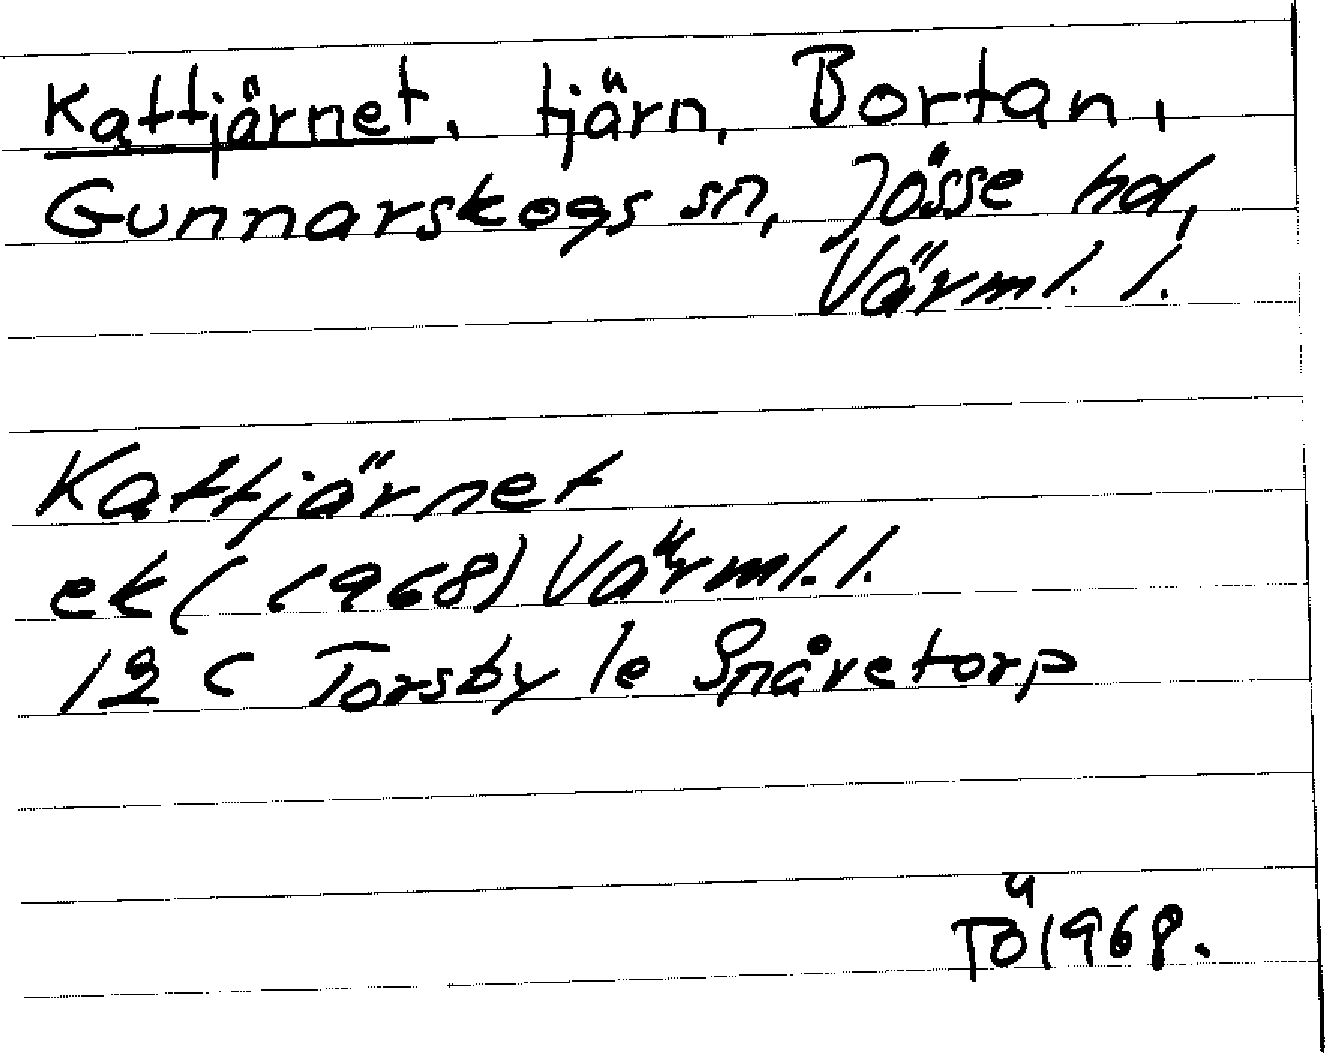 Kattjärnet, tjärn, Bortan,
Gunnarskogs sn, Jösse hd,
Värml. l.
Kattjärnet
ek (1968) Värml. l.
12 C Torsby le Snåretorp
TÖ 1968.